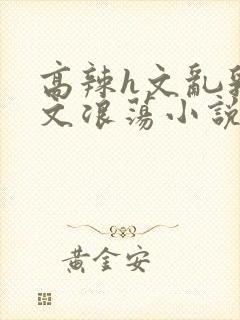 高辣h文亂
文浪蕩小說
黃金安